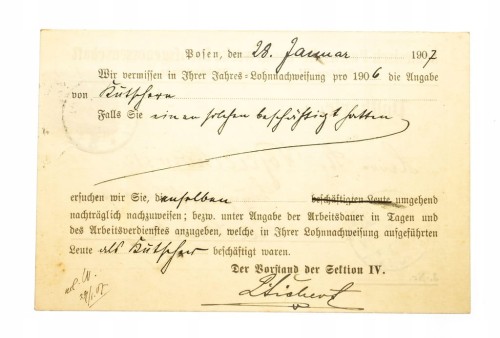 Posen, den 28. Januar 1907
Wir vermissen in Ihrer Jahres-Lohnnachweisung pro 1906 die Angabe
von Kutschern
Falls Sie einen solchen beschäftigt hatten
ersuchen wir Sie, denselben beschäftigten Leute umgehend
nachträglich nachzuweisen; bezw. unter Angabe der Arbeitsdauer in Tagen und
des Arbeitsverdienstes anzugeben, welche in Ihrer Lohnnachweisung aufgeführten
Leute als Kutscher beschäftigt waren.
Der Vorstand der Sektion IV.